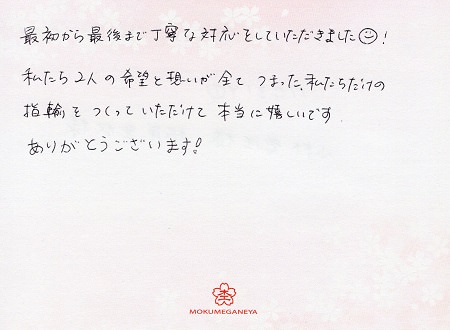 最初から最後まで丁寧な対応をしていただきました☺!
私たち2人の希望と想いが全てつまった、私たちだけの
指輪をつくっていただけて本当に嬉しいです
ありがとうございます!
杢
MOKUMEGANEYA